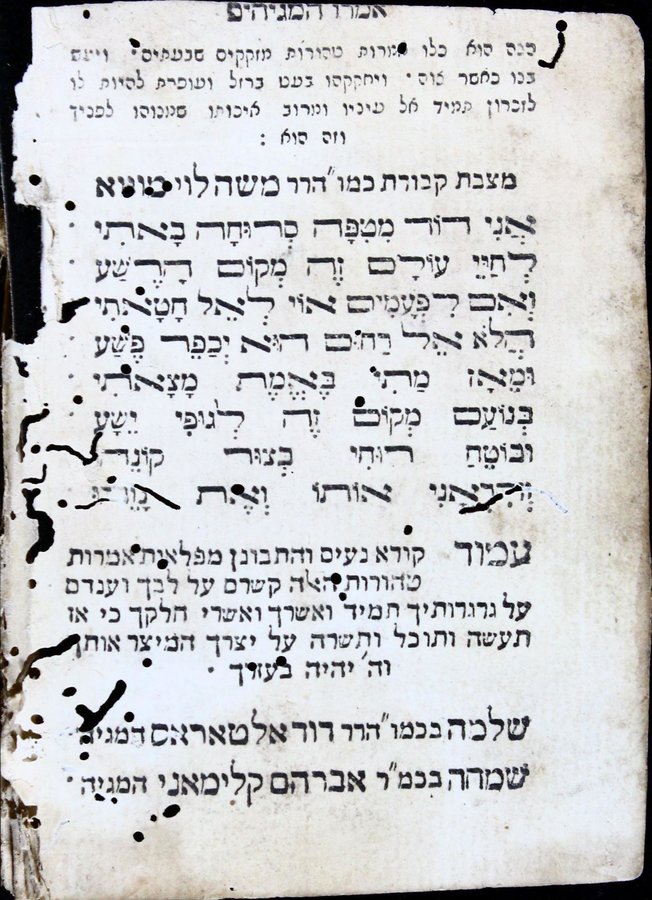 אמרו המגיהים
הנה הוא כלו אמרות טהורות מזקקים שבעתים׃ ויעש
בנו כאשר אוה׃ ויחקקהו בעט ברזל ועופרת להיות לו
לזכרון תמיד אל עיניו ומרוב איכותו שמנוהו לפניך
וזה הוא :
מצבת קבורת כמו״הרר משה לוי מוצא
אֲנִי דוֹר מִטִפָּה סְרוּחָה בָּאתִי
לְחַיֵי עוֹלָם זֶה מְקוֹם הָרֶשַׁע
וְאִם לִפְעָמִים אוֹי לָאֵל חָטָאתִי
הֲלֹא אֵל רַחוּם הוּא יְכַפֵּר פֶּשַׁע
וּמֵאָז מַתִּי בֶּאֱמֶת מָצָאתִי
בְּנוֹעַם מְקוֹם זֶה לְגוּפִי יֵשַׁע
וּבוֹטֵחַ רוּחִי בְּצוּר קוֹנֵהוּ
אוֹתוֹ וְאֶת נָוֵהוּ
עמוד קורא נעים והתבונן מפלאות אמרות
טהורות האלה קשרם על לבך וענדם
על גרגרותיך תמיד ואשרך ואשרי חלקך כי אז
תעשה ותוכל ותשרה על יצרך המיצר אותך
וה׳ יהיה בעזרך ׃
שלמה בכמו״הרר דוד אלטאראס המגיה
שמחה בכמ״ר אברהם קלימאני המגיה